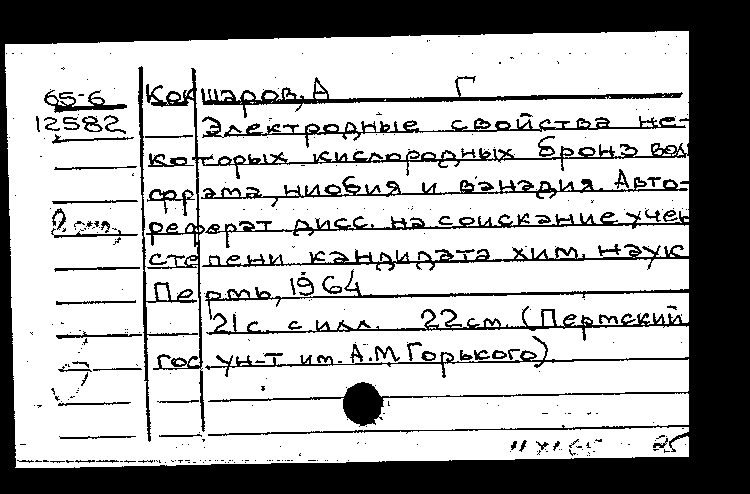 65-6 Кокшаров, А Г
12582 Электродные свойства не-
которых кислородных бронз воль
фрама, ниобия и ванадия. Авто-
2 реферат дисс. на соискание учен
степени кандидата хим. наук
Пермь, 1964
21 с. с илл. 22 см. (Пермский
гос. ун-т им. А.М. Горького)
25